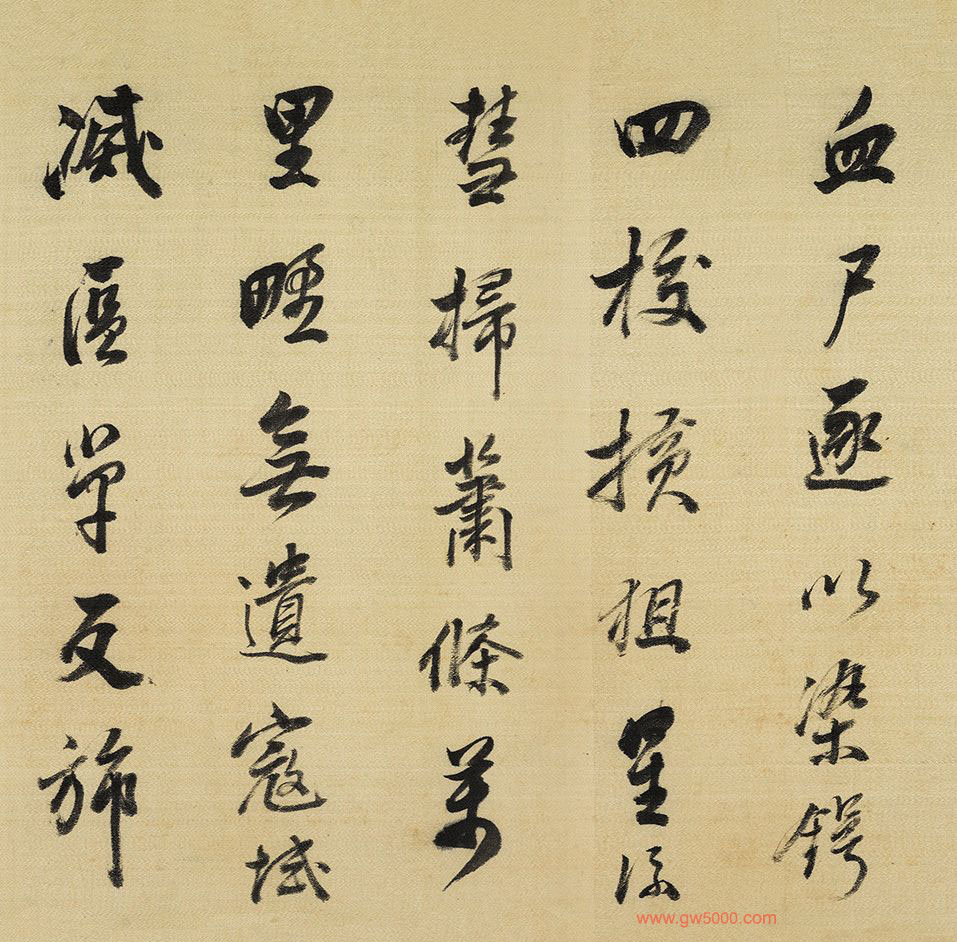 血尸逐以染鍔
四校橫徂星流
彗掃蕭條萬
里野無遺寇域
滅區單反旆
www.gw5000.com